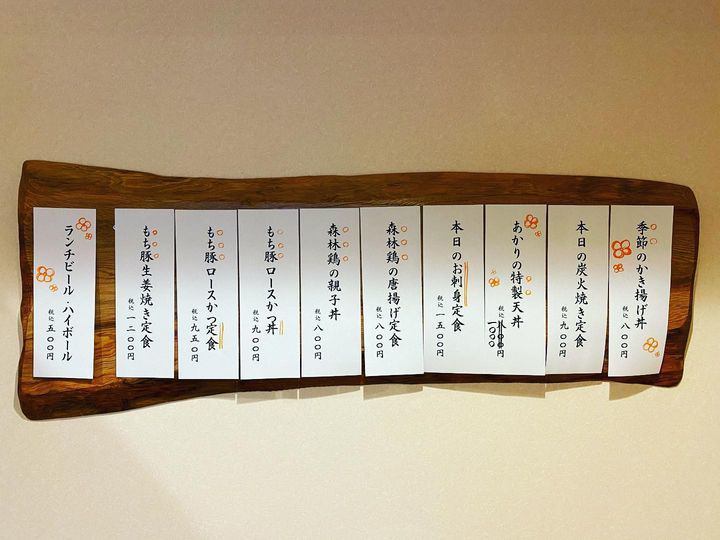 季節のかき揚げ丼 税込 八〇〇円
本日の炭火焼き定食 税込 九〇〇円
あかりの特製天丼 税込 一〇〇〇円
本日のお刺身定食 税込 一五〇〇円
森林鶏の唐揚げ定食 税込 八〇〇円
森林鶏の親子丼 税込 八〇〇円
もち豚ロースかつ丼 税込 九〇〇円
もち豚ロースかつ定食 税込 九五〇円
もち豚生姜焼き定食 税込 一二〇〇円
ランチビール・ハイボール 税込 五〇〇円